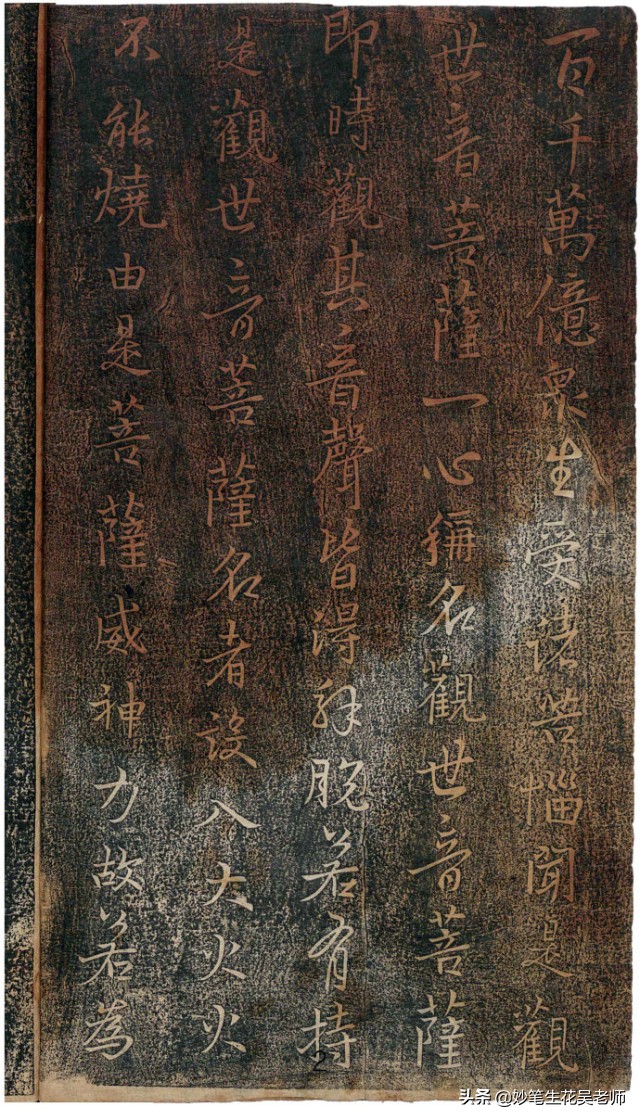 百千萬億眾生受諸苦惱聞是觀
世音菩薩一心稱名觀世音菩薩
即時觀其音聲皆得解脫若有持
是觀世音菩薩名者設入大火火
不能燒由是菩薩威神力故若為
2
头条 @妙笔生花吴老师